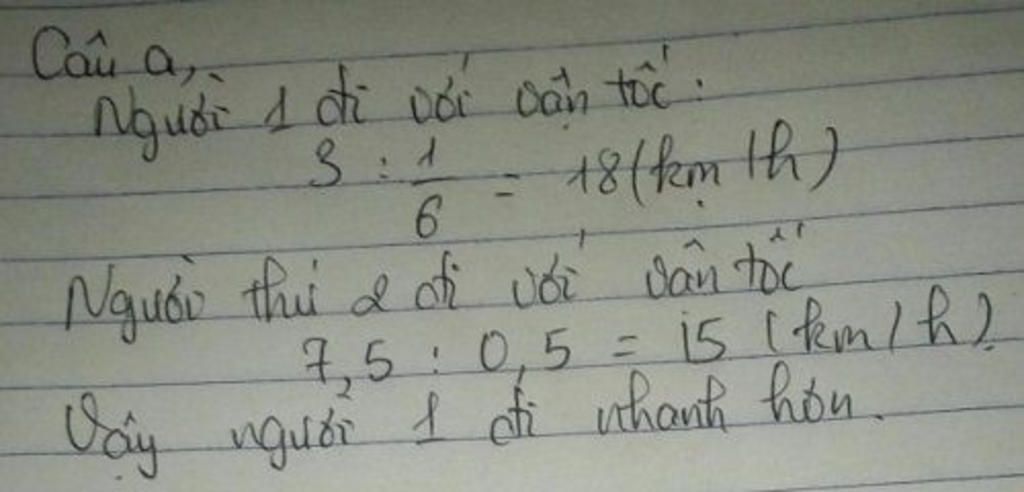 Câu a,
Người 1 đi với vận tốc:
3 : 1/6 = 18 (km/h)
Người thứ 2 đi với vận tốc
7,5 : 0,5 = 15 (km/h)
Vậy người 1 đi nhanh hơn.